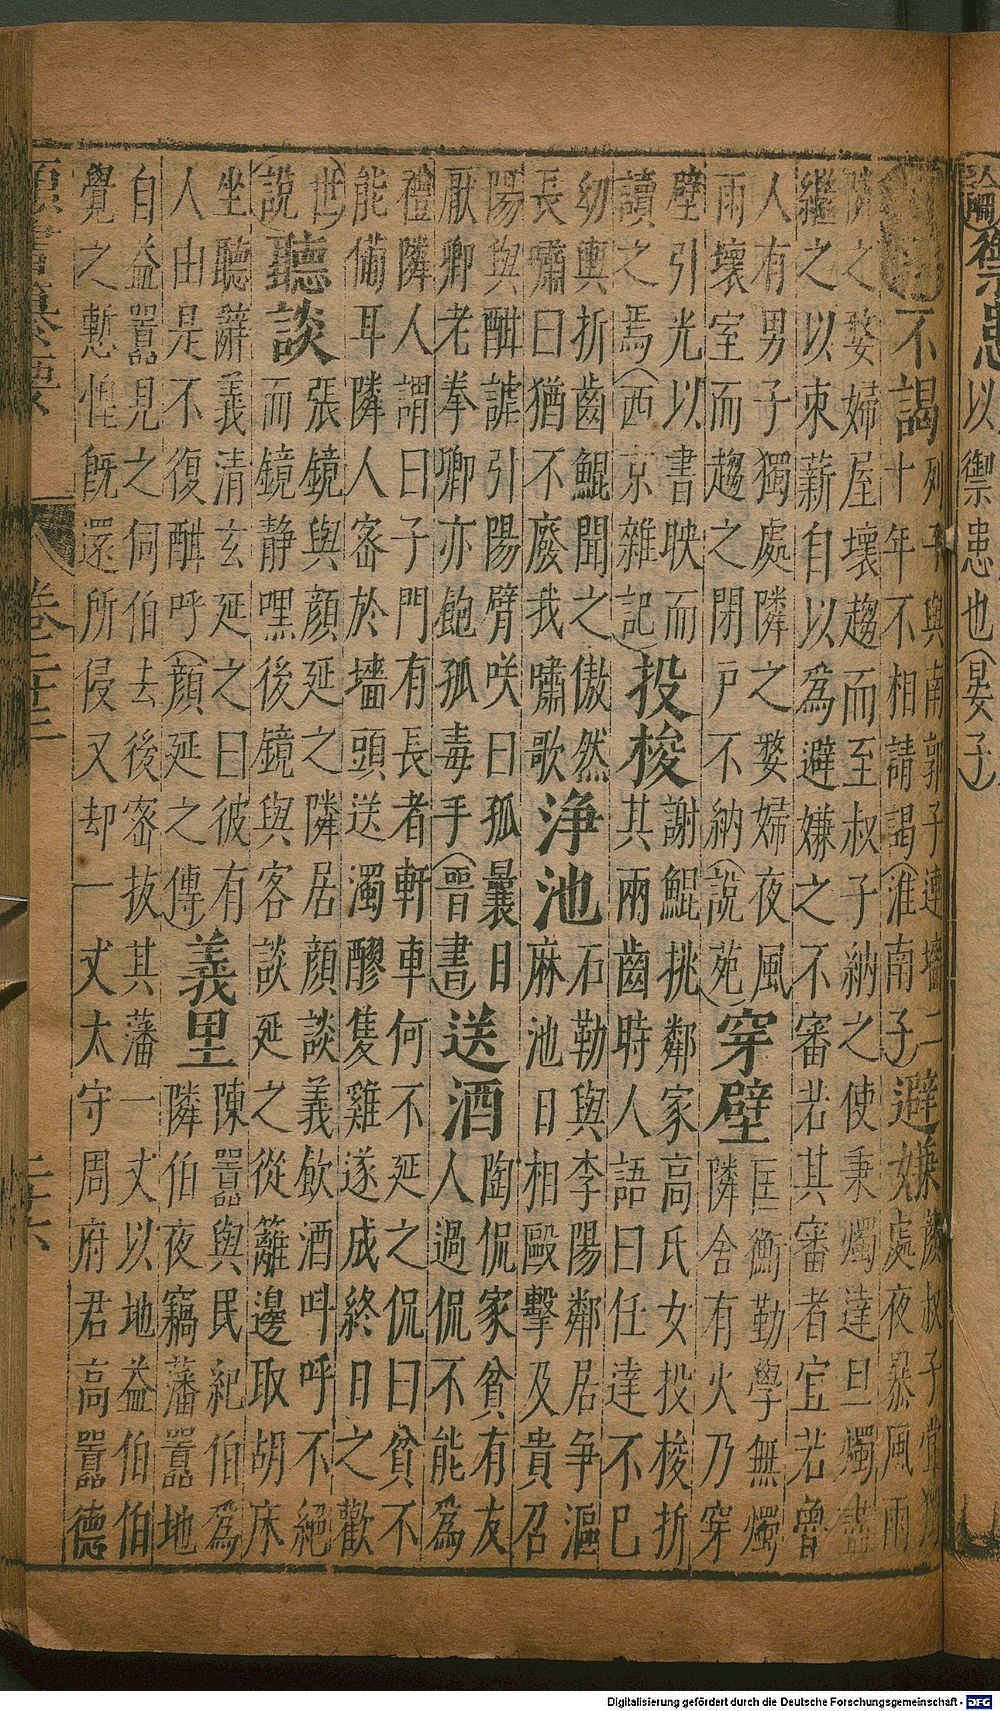 禦患
以禦患也（晏子）
不謁
列子與南郭子連墻二
十年不相請謁（淮南子）
避嫌
顏叔子嘗獨
處夜暴風雨
隣之嫠婦屋壞趨而至叔子納之使秉燭達旦燭盡
繼之以束薪自以為避嫌之不審若其審者宜若魯
人有男子獨處隣之嫠婦夜風
雨壞室而趨之閉戶不納（說苑）
穿壁
匡衡勤學無燭
隣舍有火乃穿
壁引光以書映而
讀之焉（西京雜記）
投梭
謝鯤挑鄰家高氏女投梭折
其兩齒時人語曰任達不已
幼輿折齒鯤聞之傲然
長嘯曰猶不廢我嘯歌
淨池
石勒與李陽鄰居爭漚
麻池日相毆擊及貴召
陽與酣謔引陽臂咲曰孤曩日
厭卿老拳卿亦飽孤毒手（晉書）
送酒
陶侃家貧有友
人過侃不能為
禮隣人謂曰子門有長者軒車何不延之侃曰貧不
能備耳隣人密於墻頭送濁醪隻雞遂成終日之歡
（世說）
聽談
張鏡與顏延之隣居顏談義飲酒呌呼不絕
而鏡静嘿後鏡與客談延之從籬邊取胡床
坐聽辭義清玄延之曰彼有
人由是不復酣呼（顏延之傳）
義里
陳囂與民紀伯為
隣伯夜竊藩囂地
自益囂見之伺伯去後密拔其藩一丈以地益伯伯
覺之慙惶旣還所侵又却一丈太守周府君高囂德
卷二十二
Digitalisierung gefördert durch die Deutsche Forschungsgemeinschaft - DFG